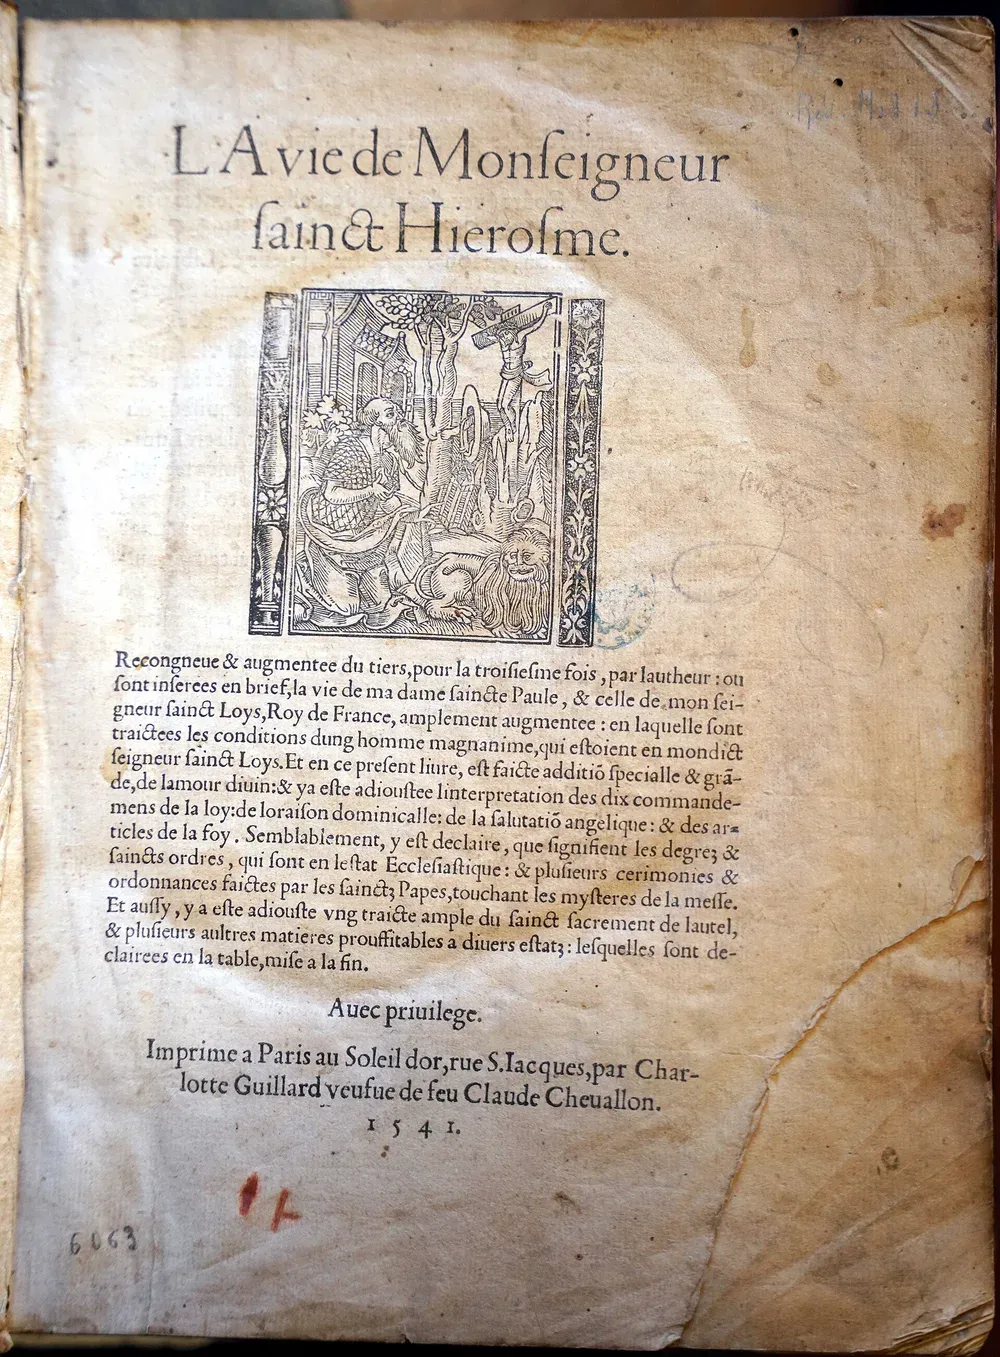 LA vie de Monſeigneur
ſainct Hieroſme.
Recongneue & augmentee du tiers, pour la troiſieſme fois, par lautheur : ou
ſont inſerees en brief, la vie de ma dame ſaincte Paule, & celle de mon ſei-
gneur ſainct Loys, Roy de France, amplement augmentee : en laquelle ſont
traictees les conditions dung homme magnanime, qui eſtoient en mondict
ſeigneur ſainct Loys. Et en ce preſent liure, eſt faicte additiõ ſpecialle & grã-
de, de lamour diuin: & ya eſte adiouſtee linterpretation des dix commande-
mens de la loy: de loraiſon dominicalle: de la ſalutatiõ angelique: & des ar-
ticles de la foy. Semblablement, y eſt declaire, que ſignifient les degreʒ &
ſaincts ordres, qui ſont en leſtat Eccleſiaſtique: & pluſieurs cerimonies &
ordonnances faictes par les ſainctʒ Papes, touchant les myſteres de la meſſe.
Et auſſy, y a eſte adiouſte vng traicte ample du ſainct ſacrement de lautel,
& pluſieurs aultres matieres prouffitables a diuers eſtatʒ: leſquelles ſont de-
clairees en la table, miſe a la fin.
Auec priuilege.
Imprime a Paris au Soleil dor, rue S. Iacques, par Char-
lotte Guillard veufue de feu Claude Cheuallon.
1541.
6063